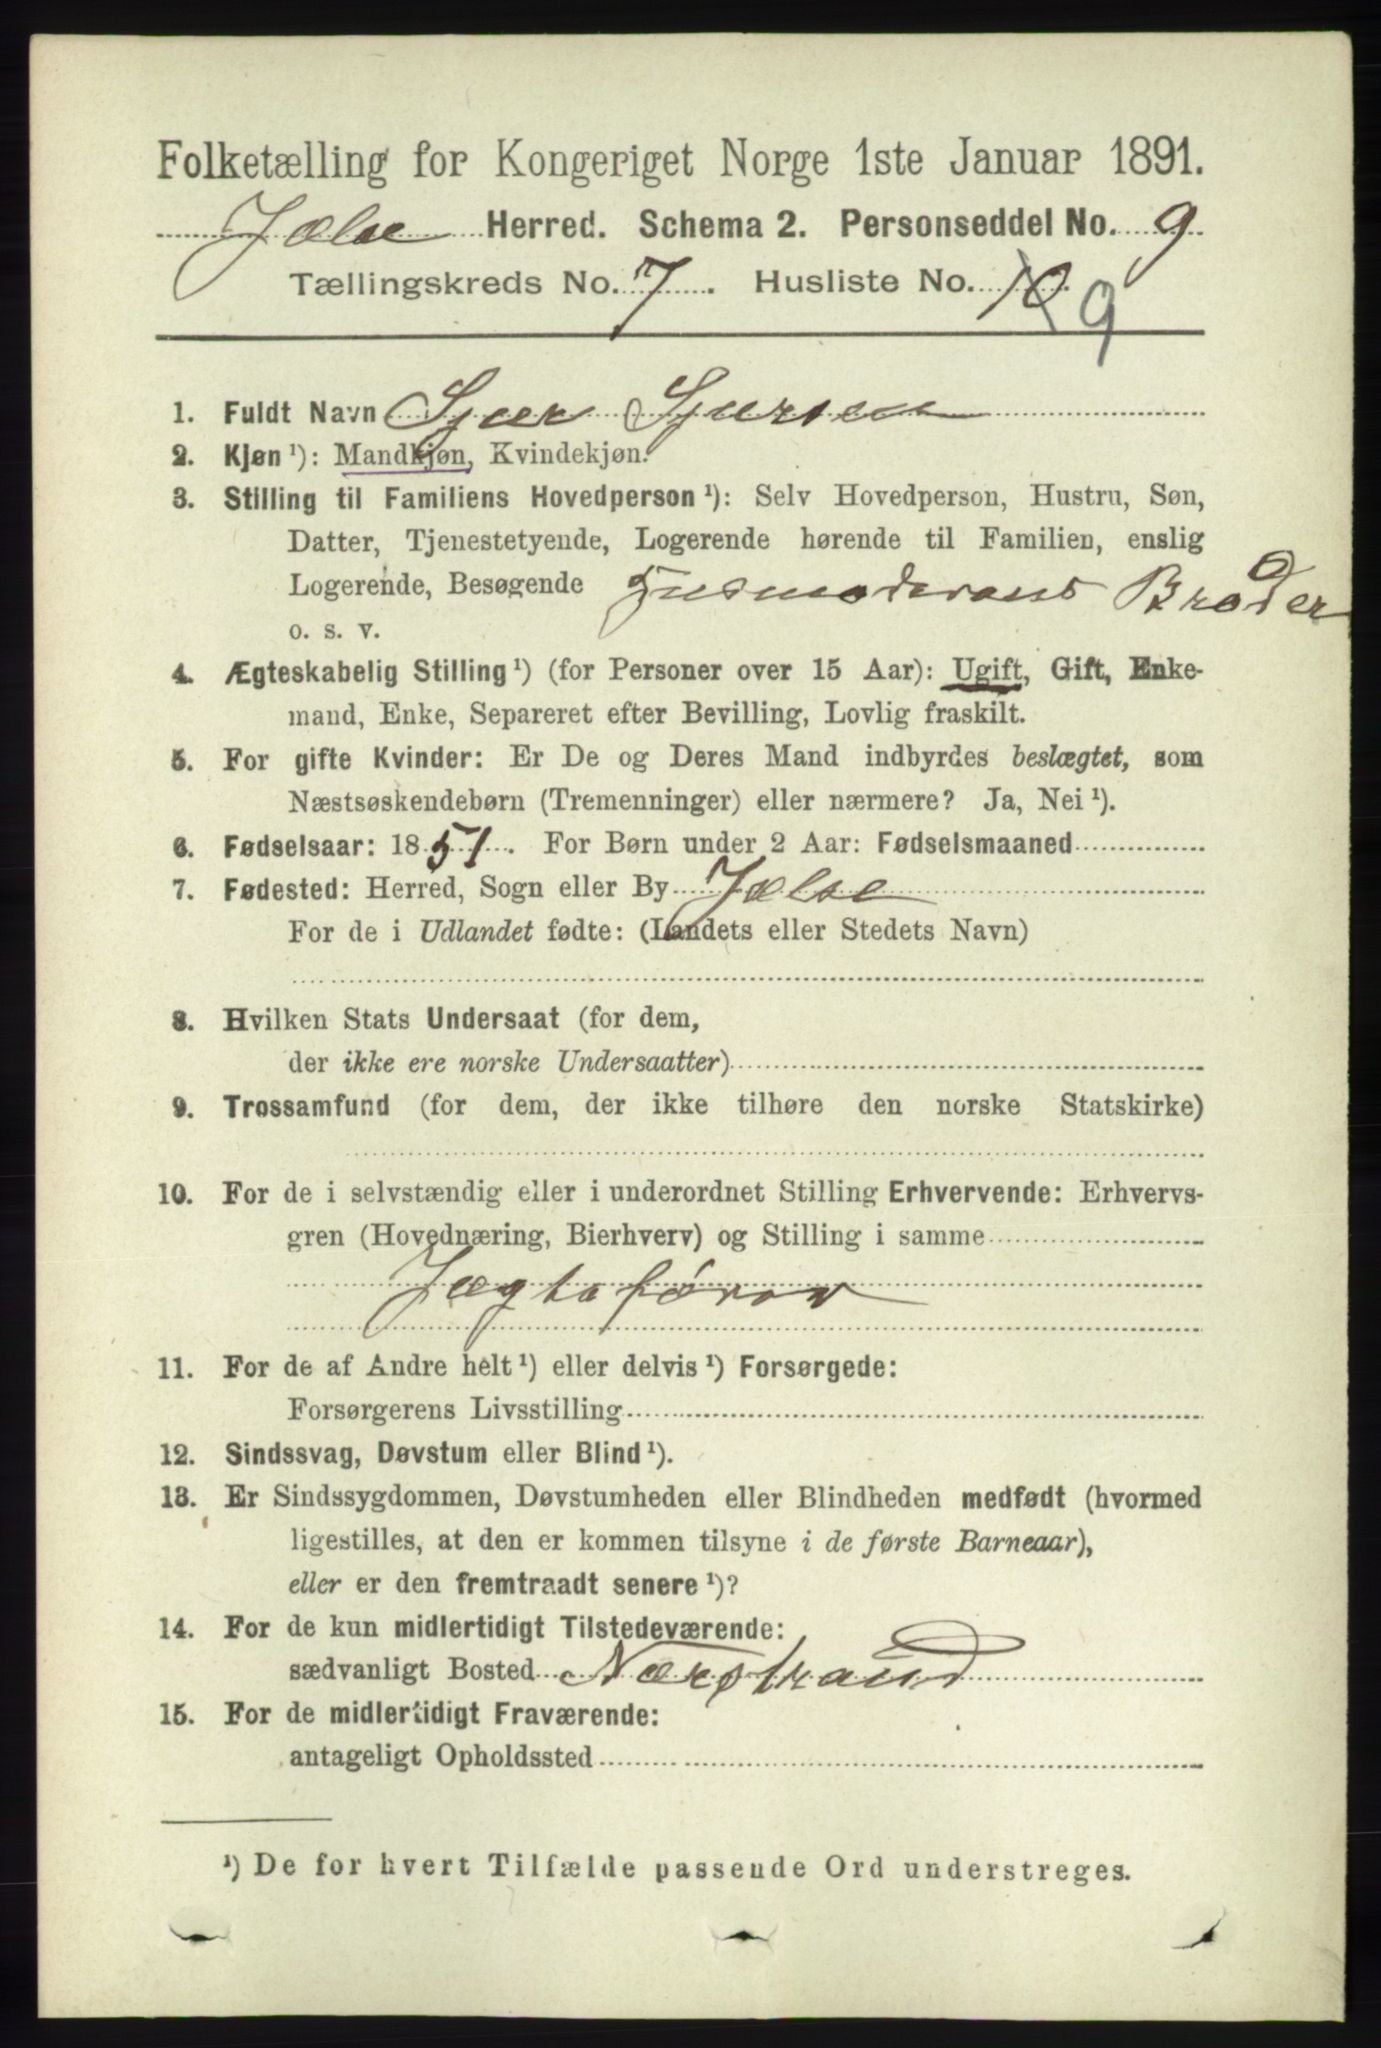 Folketælling for Kongeriget Norge 1ste Januar 1891.
Jælse Herred. Schema 2. Personseddel No. 9
Tællingskreds No. 7. Husliste No. 10. 9
1. Fuldt Navn Sjur Sjursen
2. Kjøn ¹): Mandkjøn, Kvindekjøn.
3. Stilling til Familiens Hovedperson ¹): Selv Hovedperson, Hustru, Søn,
Datter, Tjenestetyende, Logerende hørende til Familien, enslig
Logerende, Besøgende Husmoderens Broder
o. s. v.
4. Ægteskabelig Stilling ¹) (for Personer over 15 Aar): Ugift, Gift, Enke-
mand, Enke, Separeret efter Bevilling, Lovlig fraskilt.
5. For gifte Kvinder: Er De og Deres Mand indbyrdes beslægtet, som
Næstsøskendebørn (Tremenninger) eller nærmere? Ja, Nei ¹).
6. Fødselsaar: 1851. For Børn under 2 Aar: Fødselsmaaned
7. Fødested: Herred, Sogn eller By Jælse
For de i Udlandet fødte: (Landets eller Stedets Navn)
8. Hvilken Stats Undersaat (for dem,
der ikke ere norske Undersaatter)
9. Trossamfund (for dem, der ikke tilhøre den norske Statskirke)
10. For de i selvstændig eller i underordnet Stilling Erhvervende: Erhvervs-
gren (Hovednæring, Bierhverv) og Stilling i samme
Jægtefører
11. For de af Andre helt ¹) eller delvis ¹) Forsørgede:
Forsørgerens Livsstilling
12. Sindssvag, Døvstum eller Blind ¹).
13. Er Sindssygdommen, Døvstumheden eller Blindheden medfødt (hvormed
ligestilles, at den er kommen tilsyne i de første Barneaar),
eller er den fremtraadt senere ¹)?
14. For de kun midlertidigt Tilstedeværende:
sædvanligt Bosted Nærstrand
15. For de midlertidigt Fraværende:
antageligt Opholdssted
¹) De for hvert Tilfælde passende Ord understreges.